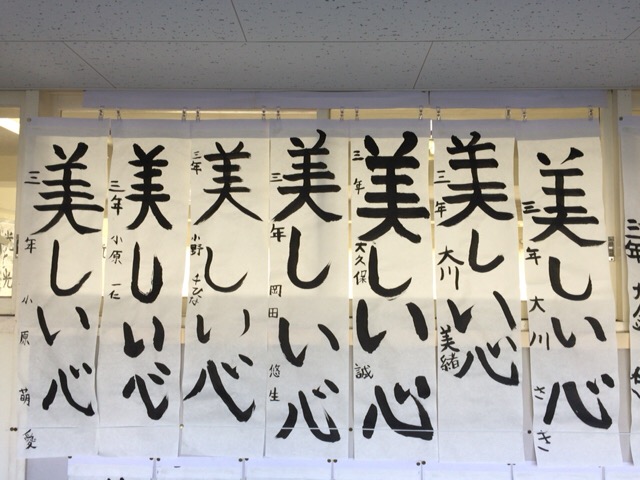 三年
美しい心
三年 大川 さき
美しい心
三年 大川 美緒
美しい心
三年 大久保 誠
美しい心
三年 岡田 悠生
美しい心
三年 小野
美しい心
三年 小原 一仁
美しい心
三年 小原 萌愛